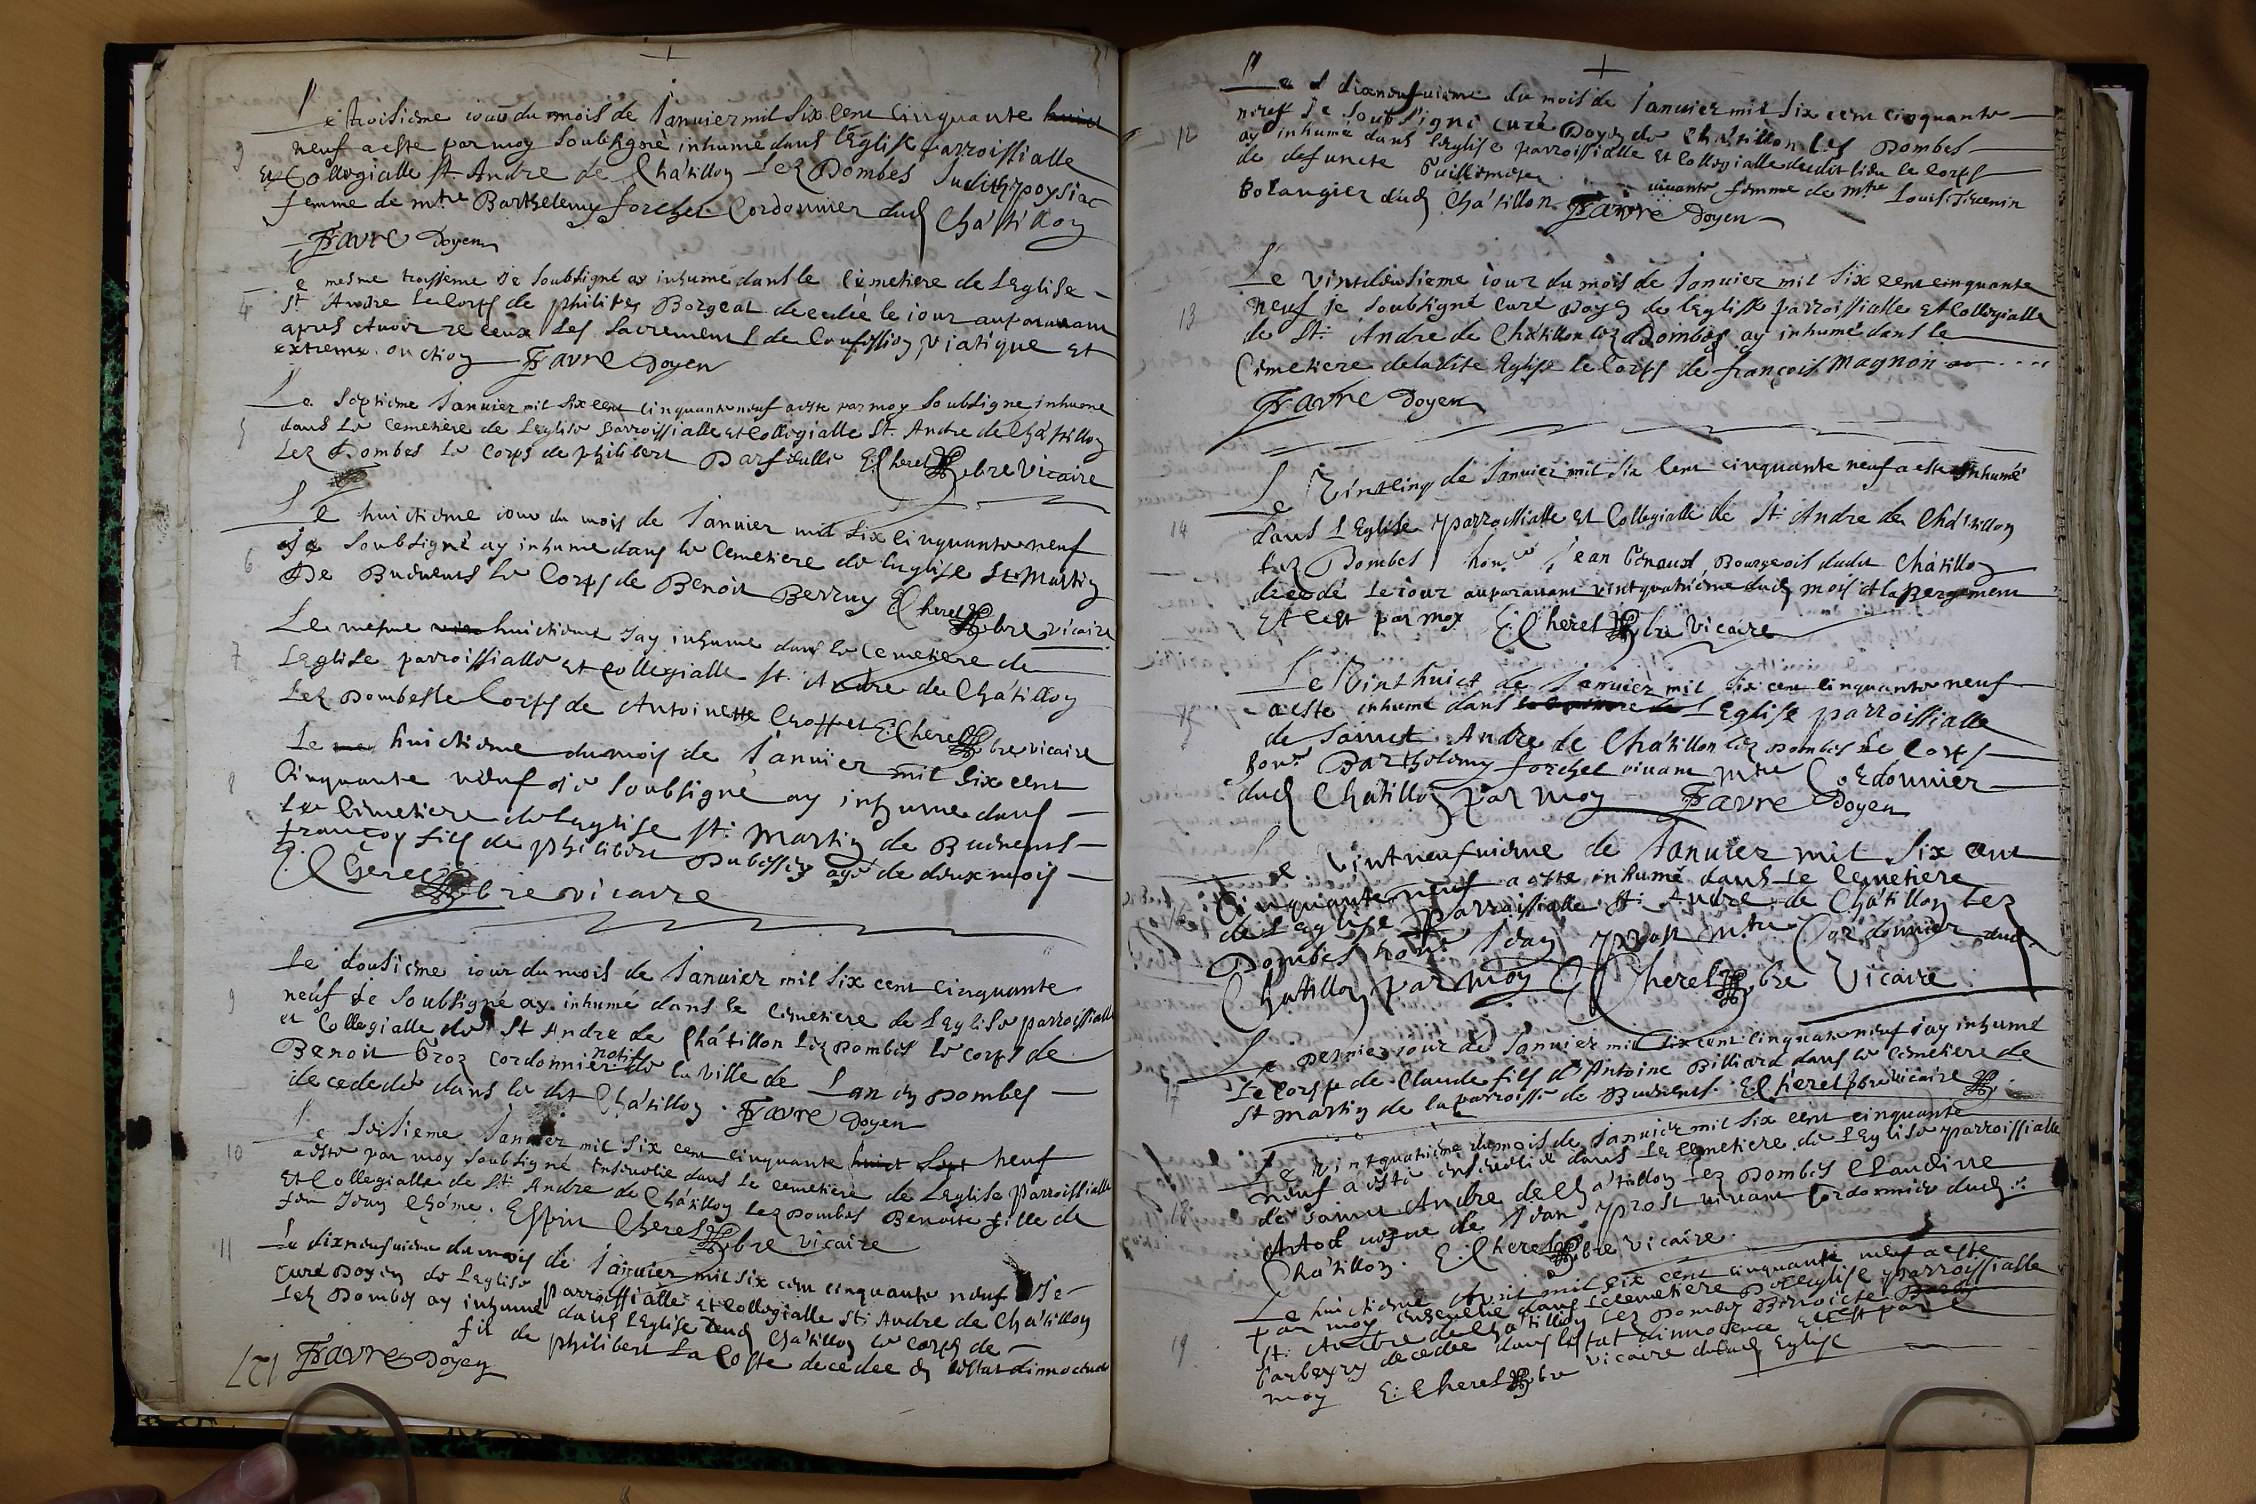 Le troisiesme iour du mois de Januier mil six cent cinquante huict
3
neuf a esté par moy soubsigné inhumé dans l'Eglise parroissialle
et Collegialle St. Andre de Châtillon Lez Dombes Judith poysiac
femme de mtre Barthelemy forchet Cordonnier dud Châtillon
Favre Doyen
4
Le mesme troisieme Je soubsigné ay inhumé dans le Cimetiere de L'Eglise
St Andre le corps de philibes Borgeat decedé le iour auparauant
apres Auoir receux les sacrements de Confession viatique Et
extreme onction Favre Doyen
5
Le septieme Januier mil six cent cinquante neuf a esté par moy soubsigné inhumé
dans Le Cemetiere de L'eglise parroissialle et Collegialle St. Andre de Châtillon
Lez Dombes Le Corps de philibert E: Cheret pbre Vicaire
6
Le huictieme iour du mois de Januier mil six cinquante neuf
Je soubsigné ay inhumé dans le Cemetiere de l'eglise St. Martin
De Buenens le Corps de Benoit Berruy E: Cheret pbre vicaire
7
Le mesme huictieme J'ay inhumé dans le Cemetiere de
L'eglise parroissialle et Collegialle St. Andre de Châtillon
Lez Dombes le Corps de Antoinette Croppet E: Cheret pbre vicaire
8
Le huictieme du mois de Januier mil six cent
Cinquante neuf je soubsigné ay inhumé dans
Le Cimetiere de Leglise St. Martin de Buenens
françoy fils de philibert Dubessey agé de deux mois
E: Cheret pbre vicaire
9
Le dousieme iour du mois de Januier mil six cent cinquante
neuf Je soubsigné ay inhumé dans le Cimetiere de L'eglise parroissialle
et Collegialle de St Andre de Châtillon Lez Dombes le corps de
Benoit Groz cordonnier natif de la ville de en Dombes
decedé dans le dit Châtillon. Favre Doyen
10
Le Januier mil six cent cinquante huict sept neuf
a esté par moy soubsigné Enseuelie dans le cemetiere de L'eglise parroissialle
Et Collegialle de St. Andre de Châtillon lez Dombes Benoite fille de
feu Chóme. Espirit Cheret pbre vicaire
11
Le dixneufuieme du mois de Januier mil six cent cinquante neuf Je
Curé Doyen de L'eglise parroissialle et Collegialle St. Andre de Châtillon
Lez Dombes ay inhumé dans L'Eglise dud Châtillon le corps de
fils de philibert La Coste decedee en l'estat d'innocence
Favre Doyen
127
Le dixneufuieme du mois de Januier mil six cent cinquante
12
neuf Je soubsigné Curé Doyen de Chastillon Lez Dombes
ay inhumé dans l'eglise parroissialle et Collegialle dudit lieu le corps
de defuncte Guillemette viuante femme de mtre Louis Thevenin
Bolangier dud Châtillon. Favre Doyen
13
Le vintdeusieme iour du mois de Januier mil six cent cinquante
neuf je soubsigné Curé Doyen de l'eglise parroissialle et Collegialle
de St. Andre de Châtillon lez Dombes ay inhumé dans le
Cimetiere de ladite Eglise le Corps de françois Magnon
Favre Doyen
14
Le Vintcinq de Januier mil six cent cinquante neuf a esté inhumé
dans L'Eglise parroissialle et Collegialle de St. Andre de Châtillon
Lez Dombes hon: Jean Genaud, Bourgeois dudit Châtillon
decedé Le iour auparauant vintquatrieme dud mois
Et c'est par moy E: Cheret pbre Vicaire
Le Vint huict de Januier mil six cent cinquante neuf
a esté inhumé dans L'Eglise parroissialle
de Sainct Andre de Châtillon lez Dombes Le Corps
hon: Bartholemy forchet viuant Mtre Cordonnier
dud Châtillon par moy Favre Doyen
Le Vintneufuieme de Januier mil six cent
Cinquante neuf a esté inhumé dans Le Cemetiere
de L'eglise parroissialle St: Andre de Châtillon Lez
Dombes hon: prost Mtre Cordonnier dud
Châtillon par moy E: Cheret pbre Vicaire
17
Le Dernier iour de Januier mil six cent cinquante neuf j'ay inhumé
Le corps de Claude fils d'Antoine Billiard dans le cimetiere de
St Martin de la parroisse de Buenens. E: Cheret pbre vicaire
18
Le vintquatrieme du mois de Januier mil six cent cinquante
neuf a esté enseuelie dans Le Cemetiere de L'Eglise parroissialle
de Sainct Andre de Châtillon Lez Dombes Claudine
de prost viuant Cordonnier dud
Châtillon. E: Cheret pbre vicaire.
19
Le huictieme Avril mil six cent cinquante neuf a esté
par moy enseuelie dans Le Cemetiere De l'eglise parroissialle
St. Andre de Châtillon lez Dombes Benoiste
decedee dans l'estat d'innocence Et c'est par
moy E: Cheret pbre vicaire dudit Eglise